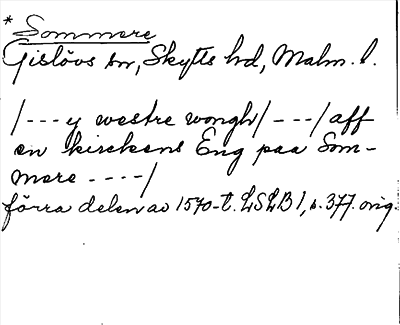 * Sommere
Gislövs sn, Skytts hd, Malm. l.
/--- y westre wongh/---/aff
en kirckens Eng paa Som-
mere ----/
förra delen av 1570-t. LSLB 1, s. 377. orig.